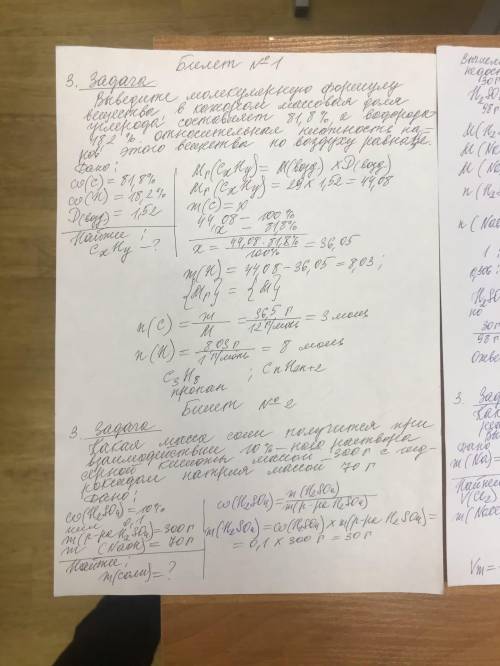 Билет №1
3. Задача
Выведите молекулярную формулу
вещества, в котором массовая доля
углерода составляет 81,8%, а водорода
18,2%. Относительная плотность па-
ров этого вещества по воздуху равна 1,52.
Дано:
ω(C) = 81,8%
ω(H) = 18,2%
D(возд) = 1,52
Найти:
CxHy - ?
Mr(CxHy) = M(возд) × D(возд)
Mr(CxHy) = 29 × 1,52 = 44,08
m(C) = x
44,08 – 100%
x – 81,8%
x = 44,08 · 81,8% / 100% = 36,05
m(H) = 44,08 – 36,05 = 8,03;
{Mr} = {M}
n(C) = m/M = 36,5 г / 12 г/моль = 3 моль
n(H) = 8,03 г / 1 г/моль = 8 моль
C3H8 ; CnH2n+2
пропан
Билет №2
3. Задача
Какая масса соли получится при
взаимодействии 10%-ного раствора
серной кислоты массой 300 г с гид-
роксидом натрия массой 70 г
Дано:
ω(H2SO4) = 10%
или 0,1
m(р-ра H2SO4) = 300 г
m (NaOH) = 70 г
Найти:
m(соли) = ?
ω(H2SO4) = m(H2SO4) / m(р-ра H2SO4)
m(H2SO4) = ω(H2SO4) × m(р-ра H2SO4) =
= 0,1 × 300 г = 30 г
H2SO
98 г
M(H2
M(Na
M(Na
n(H2
n(Na
1 :
0,306 :
H2SO
по
30 г
98 г
Отве
3. Зад
Дано
m(Na) =
Найти
V(Cl2)
m(NaCl
Vm = –